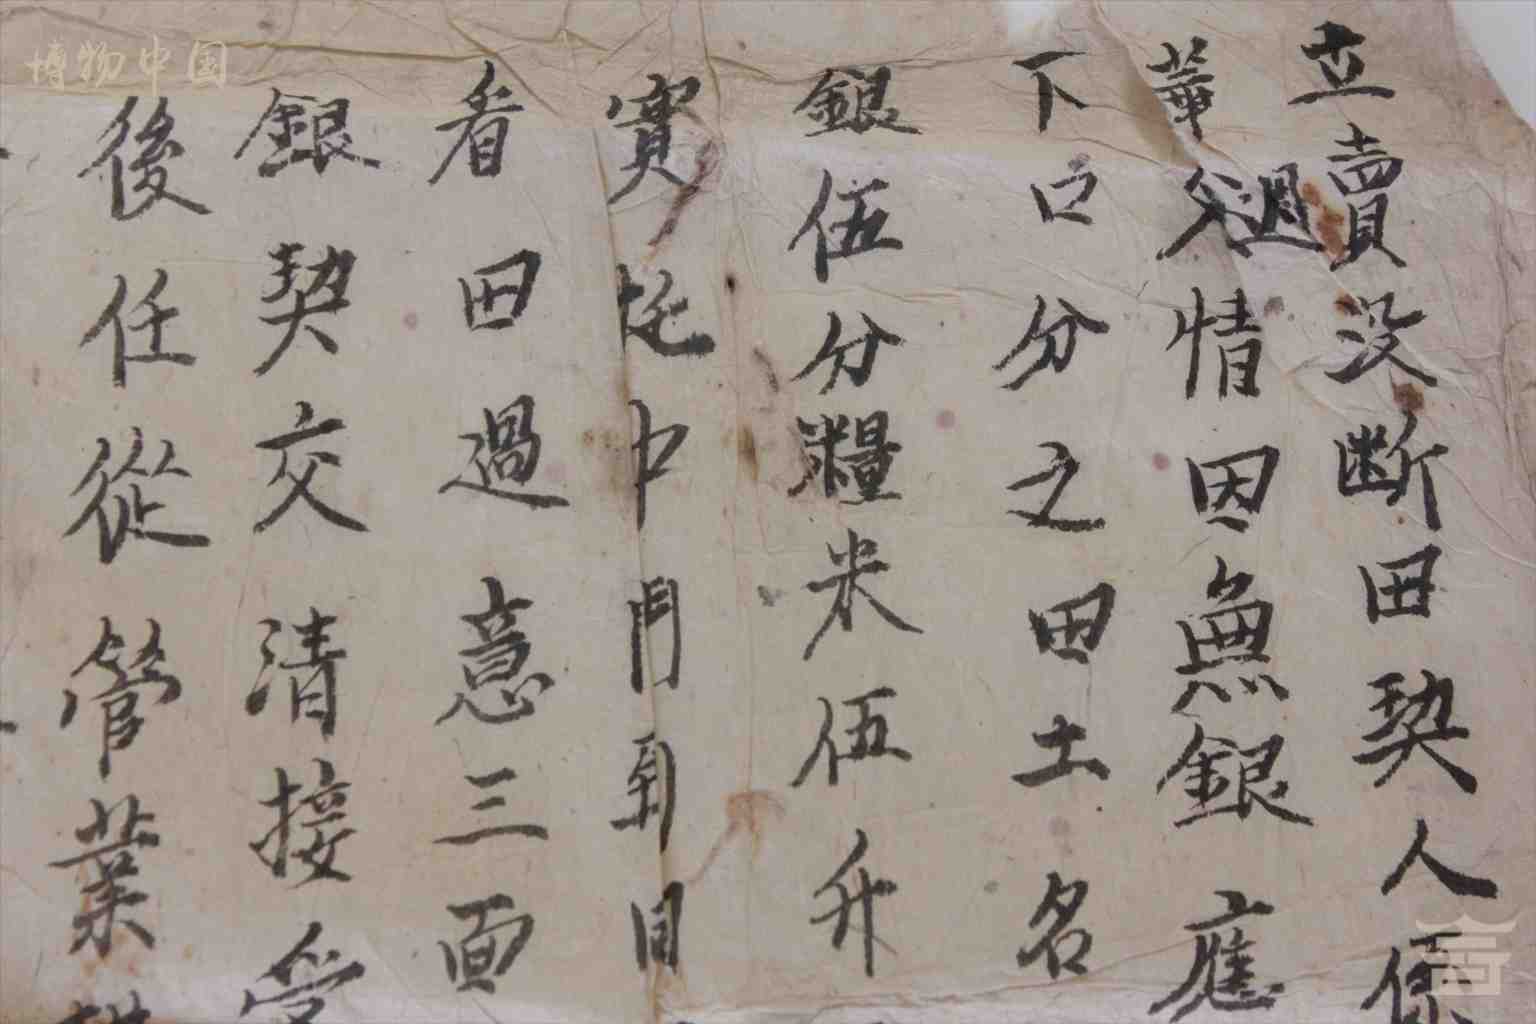 立賣没斷田契人係
華父過情因無銀應
下口分之田土名
銀伍分糧米伍升
實托中門到目
看田過意三面
銀契交清接受
後任從管業
博物中国